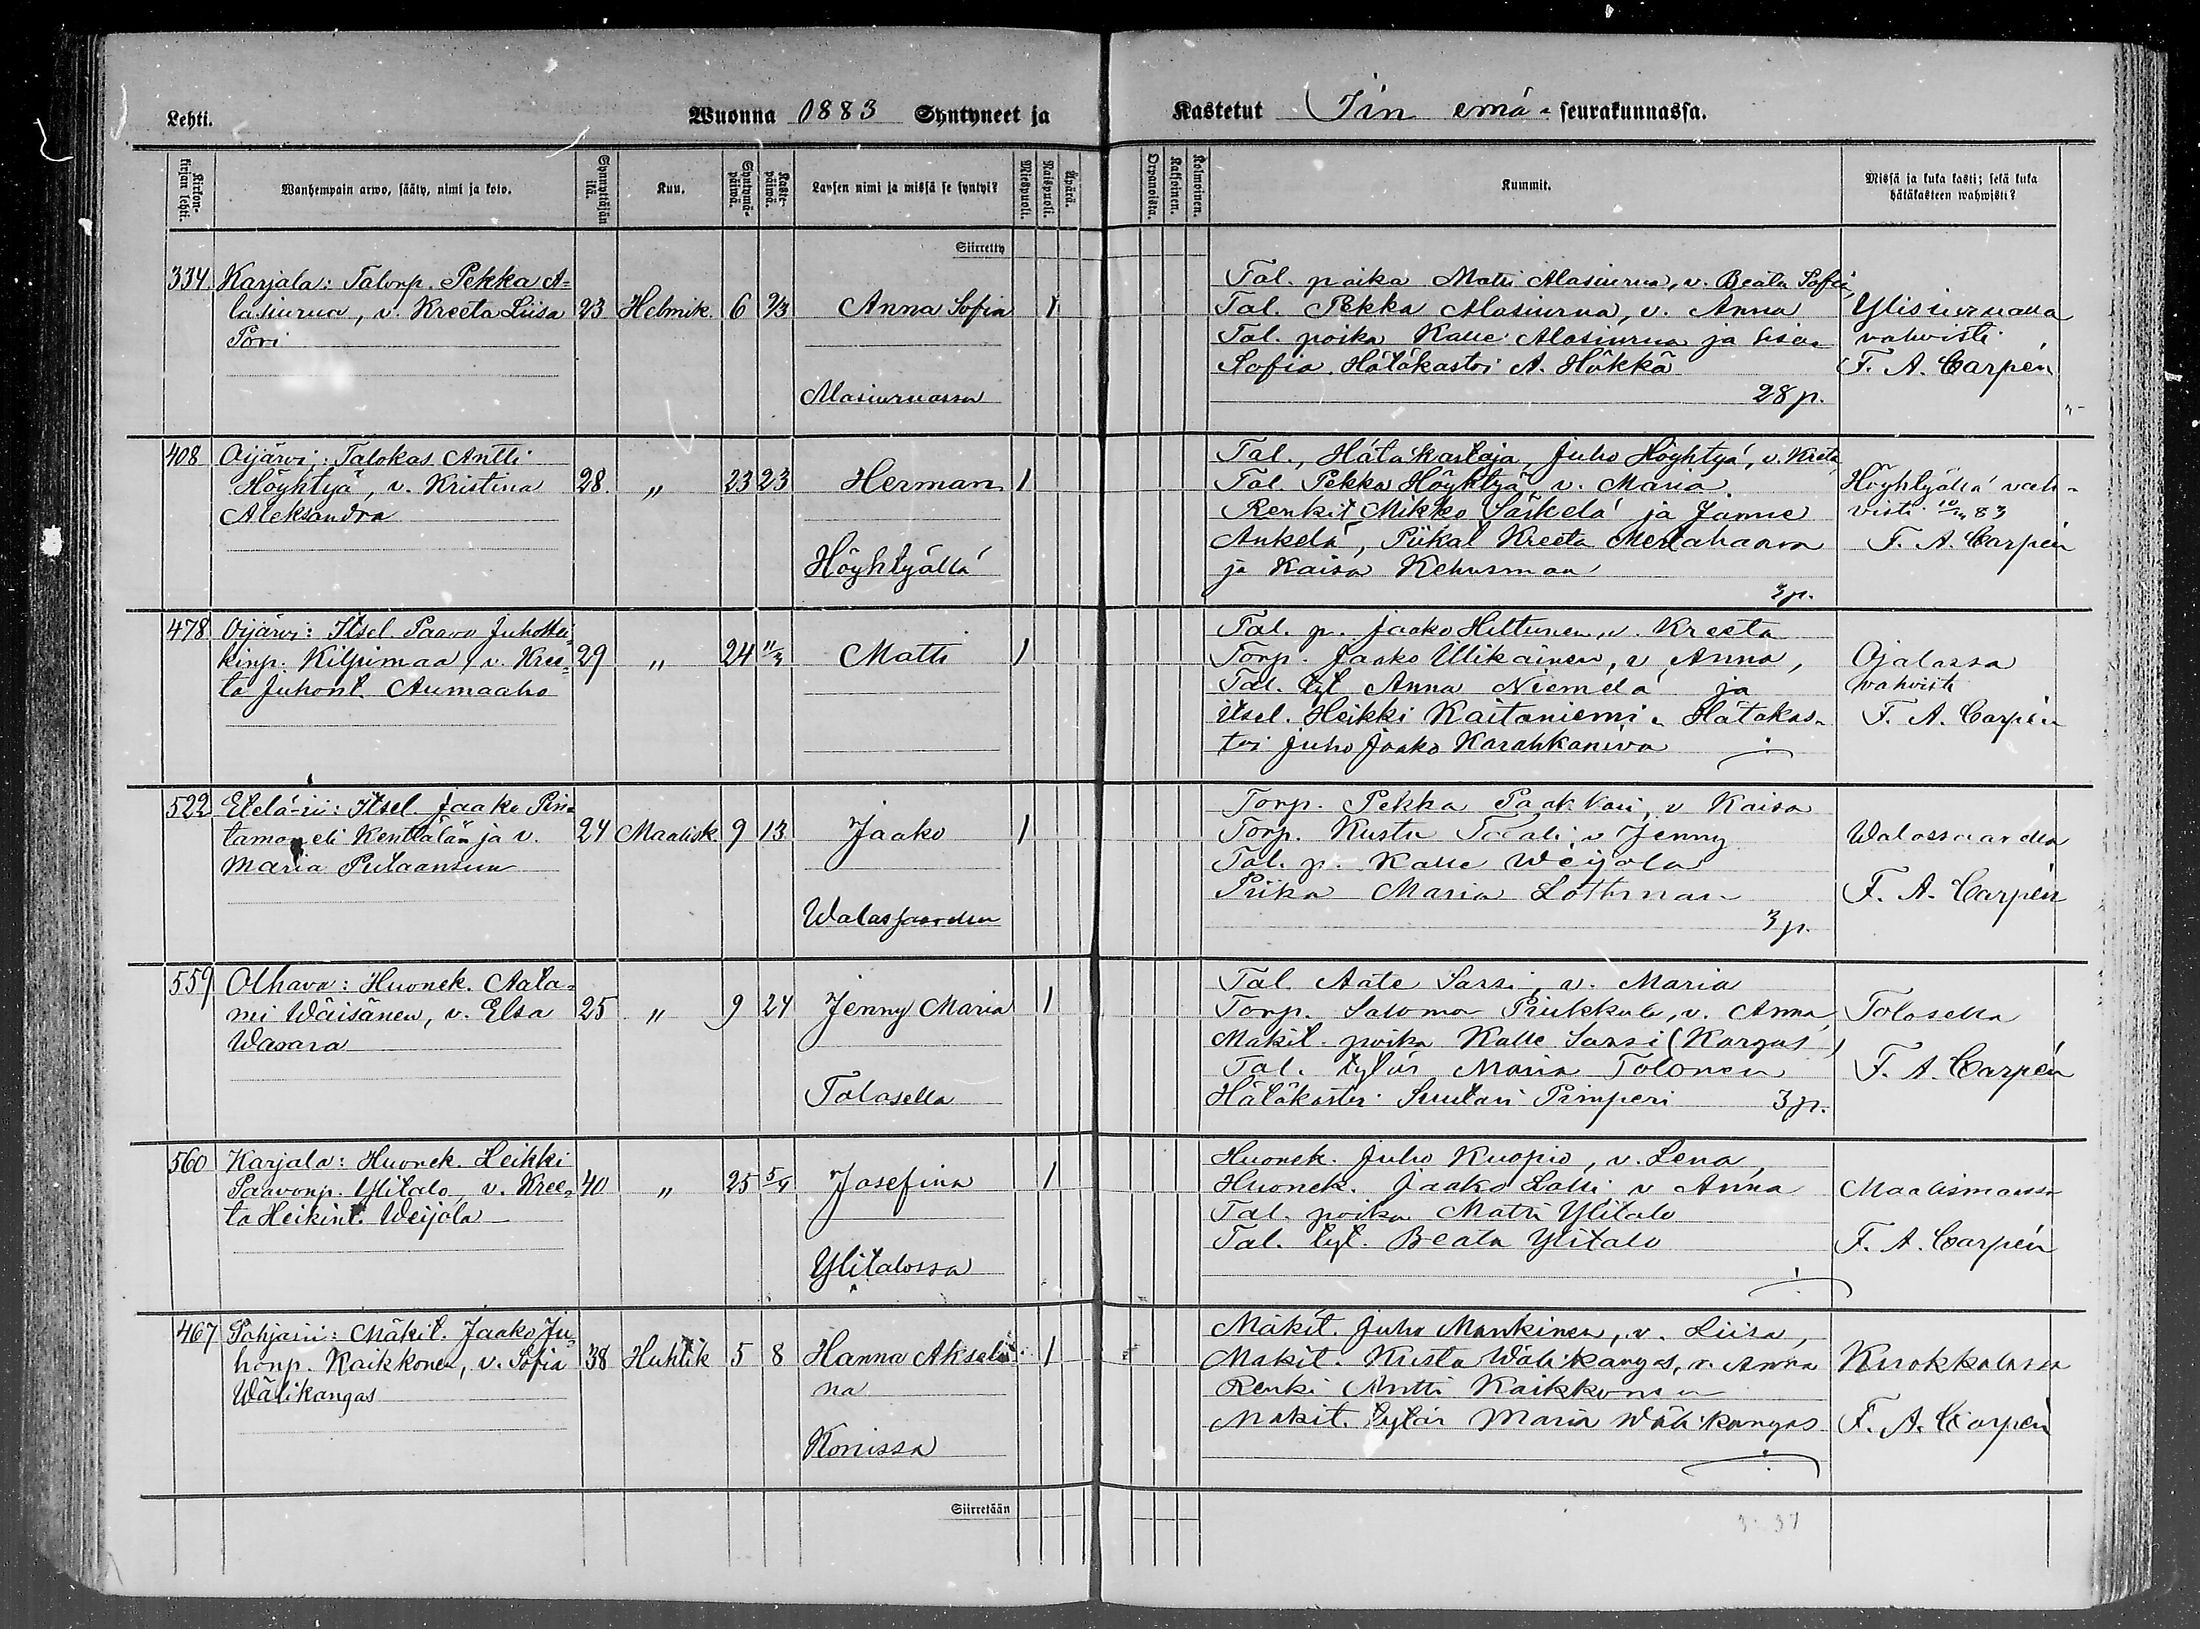 Lehti.
Wuonna 1883 Syntyneet ja
Kastetut Iin emä-seurakunnassa.
Kirkonkirjan lehti.
Wanhempain arwo, sääty, nimi ja koto.
Synnyttäjän ikä.
Kuu.
Syntymäpäiwä.
Kastepäiwä.
Lapsen nimi ja missä se syntyi?
Miespuoli.
Naispuoli.
Äpärä.
Orpanoista.
Kaksoinen.
Kolmoinen.
Kummit.
Missä ja kuka kasti; sekä kuka
hätäkasteen wahwisti?
Siirretty
334 Karjala: Talonp. Pekka A-
lasiurua, v. Kreeta Liisa 23 Helmik. 6 2/3 Anna Sofia 1
Pori
Alasiuruassa
Tal. poika Matti Alasiurua, v. Beata Sofia,
Tal. Pekka Alasiurua, v. Anna
Tal. poika Kalle Alasiurua ja Lisa
Sofia. Hätäkastoi A. Hökkä
28 p.
Ylisiurualla
vahvisti
F. A. Carpén
408 Oijärvi: Talokas Antti
Höyhtyä, v. Kristina 28 „ 23 23 Herman 1
Aleksandra
Höyhtyällä
Tal., Hätäkastaja Juho Höyhtyä, v. Kreta
Tal. Pekka Höyhtyä v. Maria.
Renkit Mikko Särkelä ja Janne
Ankelä, Piikat Kreeta Merlahaara
ja Kaisa Kehusmaa
3 p.
Höyhtyällä vah-
visti 83
F. A. Carpén
478 Oijärvi: Itsel. Paavo Juho Hei-
kinp. Kilpimaa, v. Kree- 29 „ 24 11/4 Matti 1
ta Juhont. Aumaaho
Tal. p. Jaako Hiltunen, v. Kreeta
Torp. Jaako Ulikainen, v. Anna,
Tal. tyt. Anna Niemelä ja
itsel. Heikki Kaitaniemi. Hätäkas-
toi Juho Jaako Karahkaniva
Ojalassa
vahvisti
F. A. Carpén
522 Etelä-ii: Itsel. Jaako Pin-
tamo eli Kenttälän ja v. 24 Maalisk. 9 13 Jaako 1
Maria Putaansuu
Walassaarella
Torp. Pekka Paakkari, v Kaisa
Torp. Kustu v Jenny
Tal. p. Kalle Weijola
Piika Maria Lothman
3 p.
Walassaarella
F. A. Carpén
559 Olhava: Huonek. Aata-
mi Wäisänen, v. Elsa 25 „ 9 24 Jenny Maria 1
Wasara
Tolosella
Tal. Aate Sassi, v. Maria
Torp. Salomo Priukkula, v. Anna,
Mäkit. poika Kalle Sassi (Kargas)
Tal. tytär Maria Tolonen
Hätäkastoi Suutari Pimperi 3 p.
Tolosella
F. A. Carpén
560 Karjala: Huonek. Heikki
Paavonp. Ylitalo, v. Kree- 40 „ 25 5/4 Josefina 1
ta Heikint. Weijola
Ylitalossa
Huonek. Juho Kuopio, v. Lena,
Huonek. Jaako Latti v Anna
Tal. poika Matti Ylitalo
Tal. tyt. Beata Ylitalo
Maalismaassa
F. A. Carpén
467 Pohjasii: Mäkit. Jaako Ju-
honp. Kaikkonen, v. Sofia 38 Huhtik 5 8 Hanna Akseli- 1
Wälikangas na
Konissa
Mäkit. Juho Mankinen, v. Liisa,
Mäkit. Kusta Wälikangas, v. Anna
Renki Antti Kaikkonen
Mäkit. tytär Maria Wälikangas
Kruokkalassa
F. A. Carpén
Siirretään